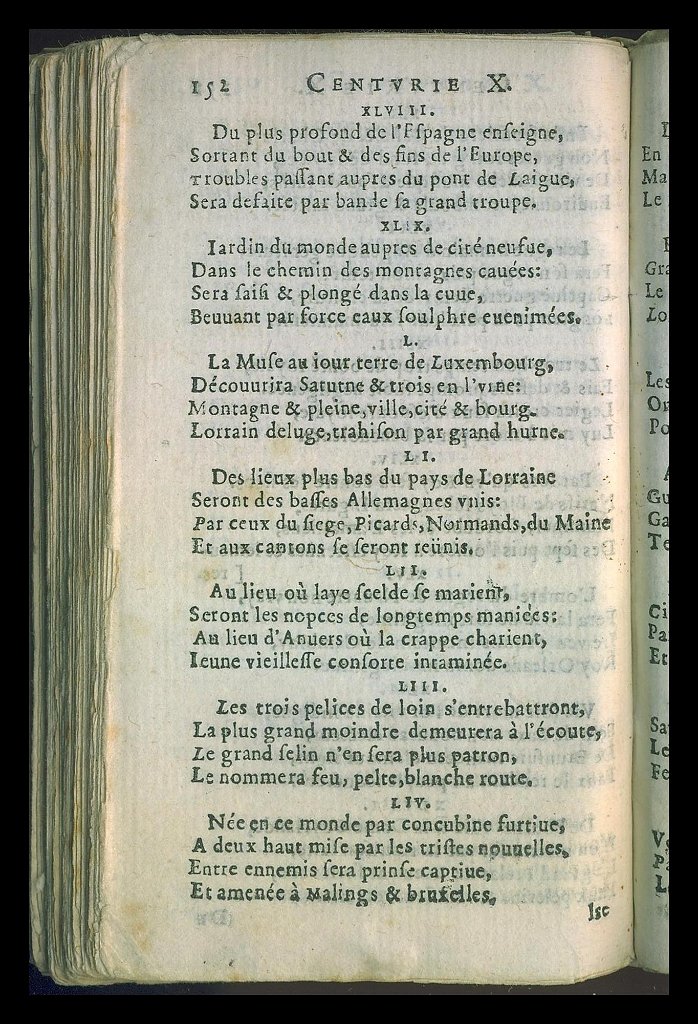 152 CENTVRIE X.
XLVIII.
Du plus profond de l'Eſpagne enſeigne,
Sortant du bout & des fins de l'Europe,
Troubles paſſant aupres du pont de Laigue,
Sera defaite par bande ſa grand troupe.
XLIX.
Iardin du monde aupres de cité neufue,
Dans le chemin des montagnes cauées:
Sera ſaiſi & plongé dans la cuue,
Beuuant par force eaux ſoulphre euenimées.
L.
La Muſe au iour terre de Luxembourg,
Découurira Saturne & trois en l'vrne:
Montagne & pleine, ville, cité & bourg.
Lorrain deluge, trahiſon par grand hurne.
LI.
Des lieux plus bas du pays de Lorraine
Seront des baſſes Allemagnes vnis:
Par ceux du ſiege, Picards, Normands, du Maine
Et aux cantons ſe ſeront reünis.
LII.
Au lieu où laye ſcelde ſe marient,
Seront les nopces de longtemps maniées:
Au lieu d'Anuers où la crappe charient,
Ieune vieilleſſe conſorte intaminée.
LIII.
Les trois pelices de loin s'entrebattront,
La plus grand moindre demeurera à l'écoute,
Le grand ſelin n'en ſera plus patron,
Le nommera feu, pelte, blanche route.
LIV.
Née en ce monde par concubine furtiue,
A deux haut miſe par les triſtes nouuelles,
Entre ennemis ſera prinſe captiue,
Et amenée à Malings & bruxelles.
Ise
En
Ma
Le
Gra
Le
Lo
Les
Or
Po
Gu
Ga
Te
Ci
Pa
Et
Sa
Le
Fe